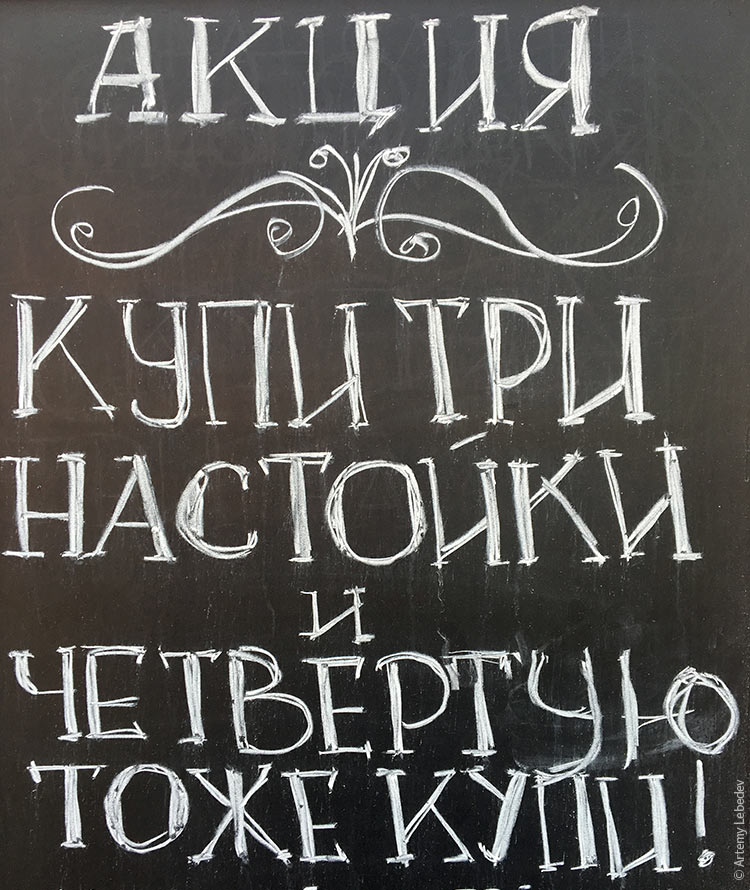 АКЦИЯ
КУПИ ТРИ
НАСТОЙКИ
И
ЧЕТВЕРТУЮ
ТОЖЕ КУПИ!
© Artemy Lebedev